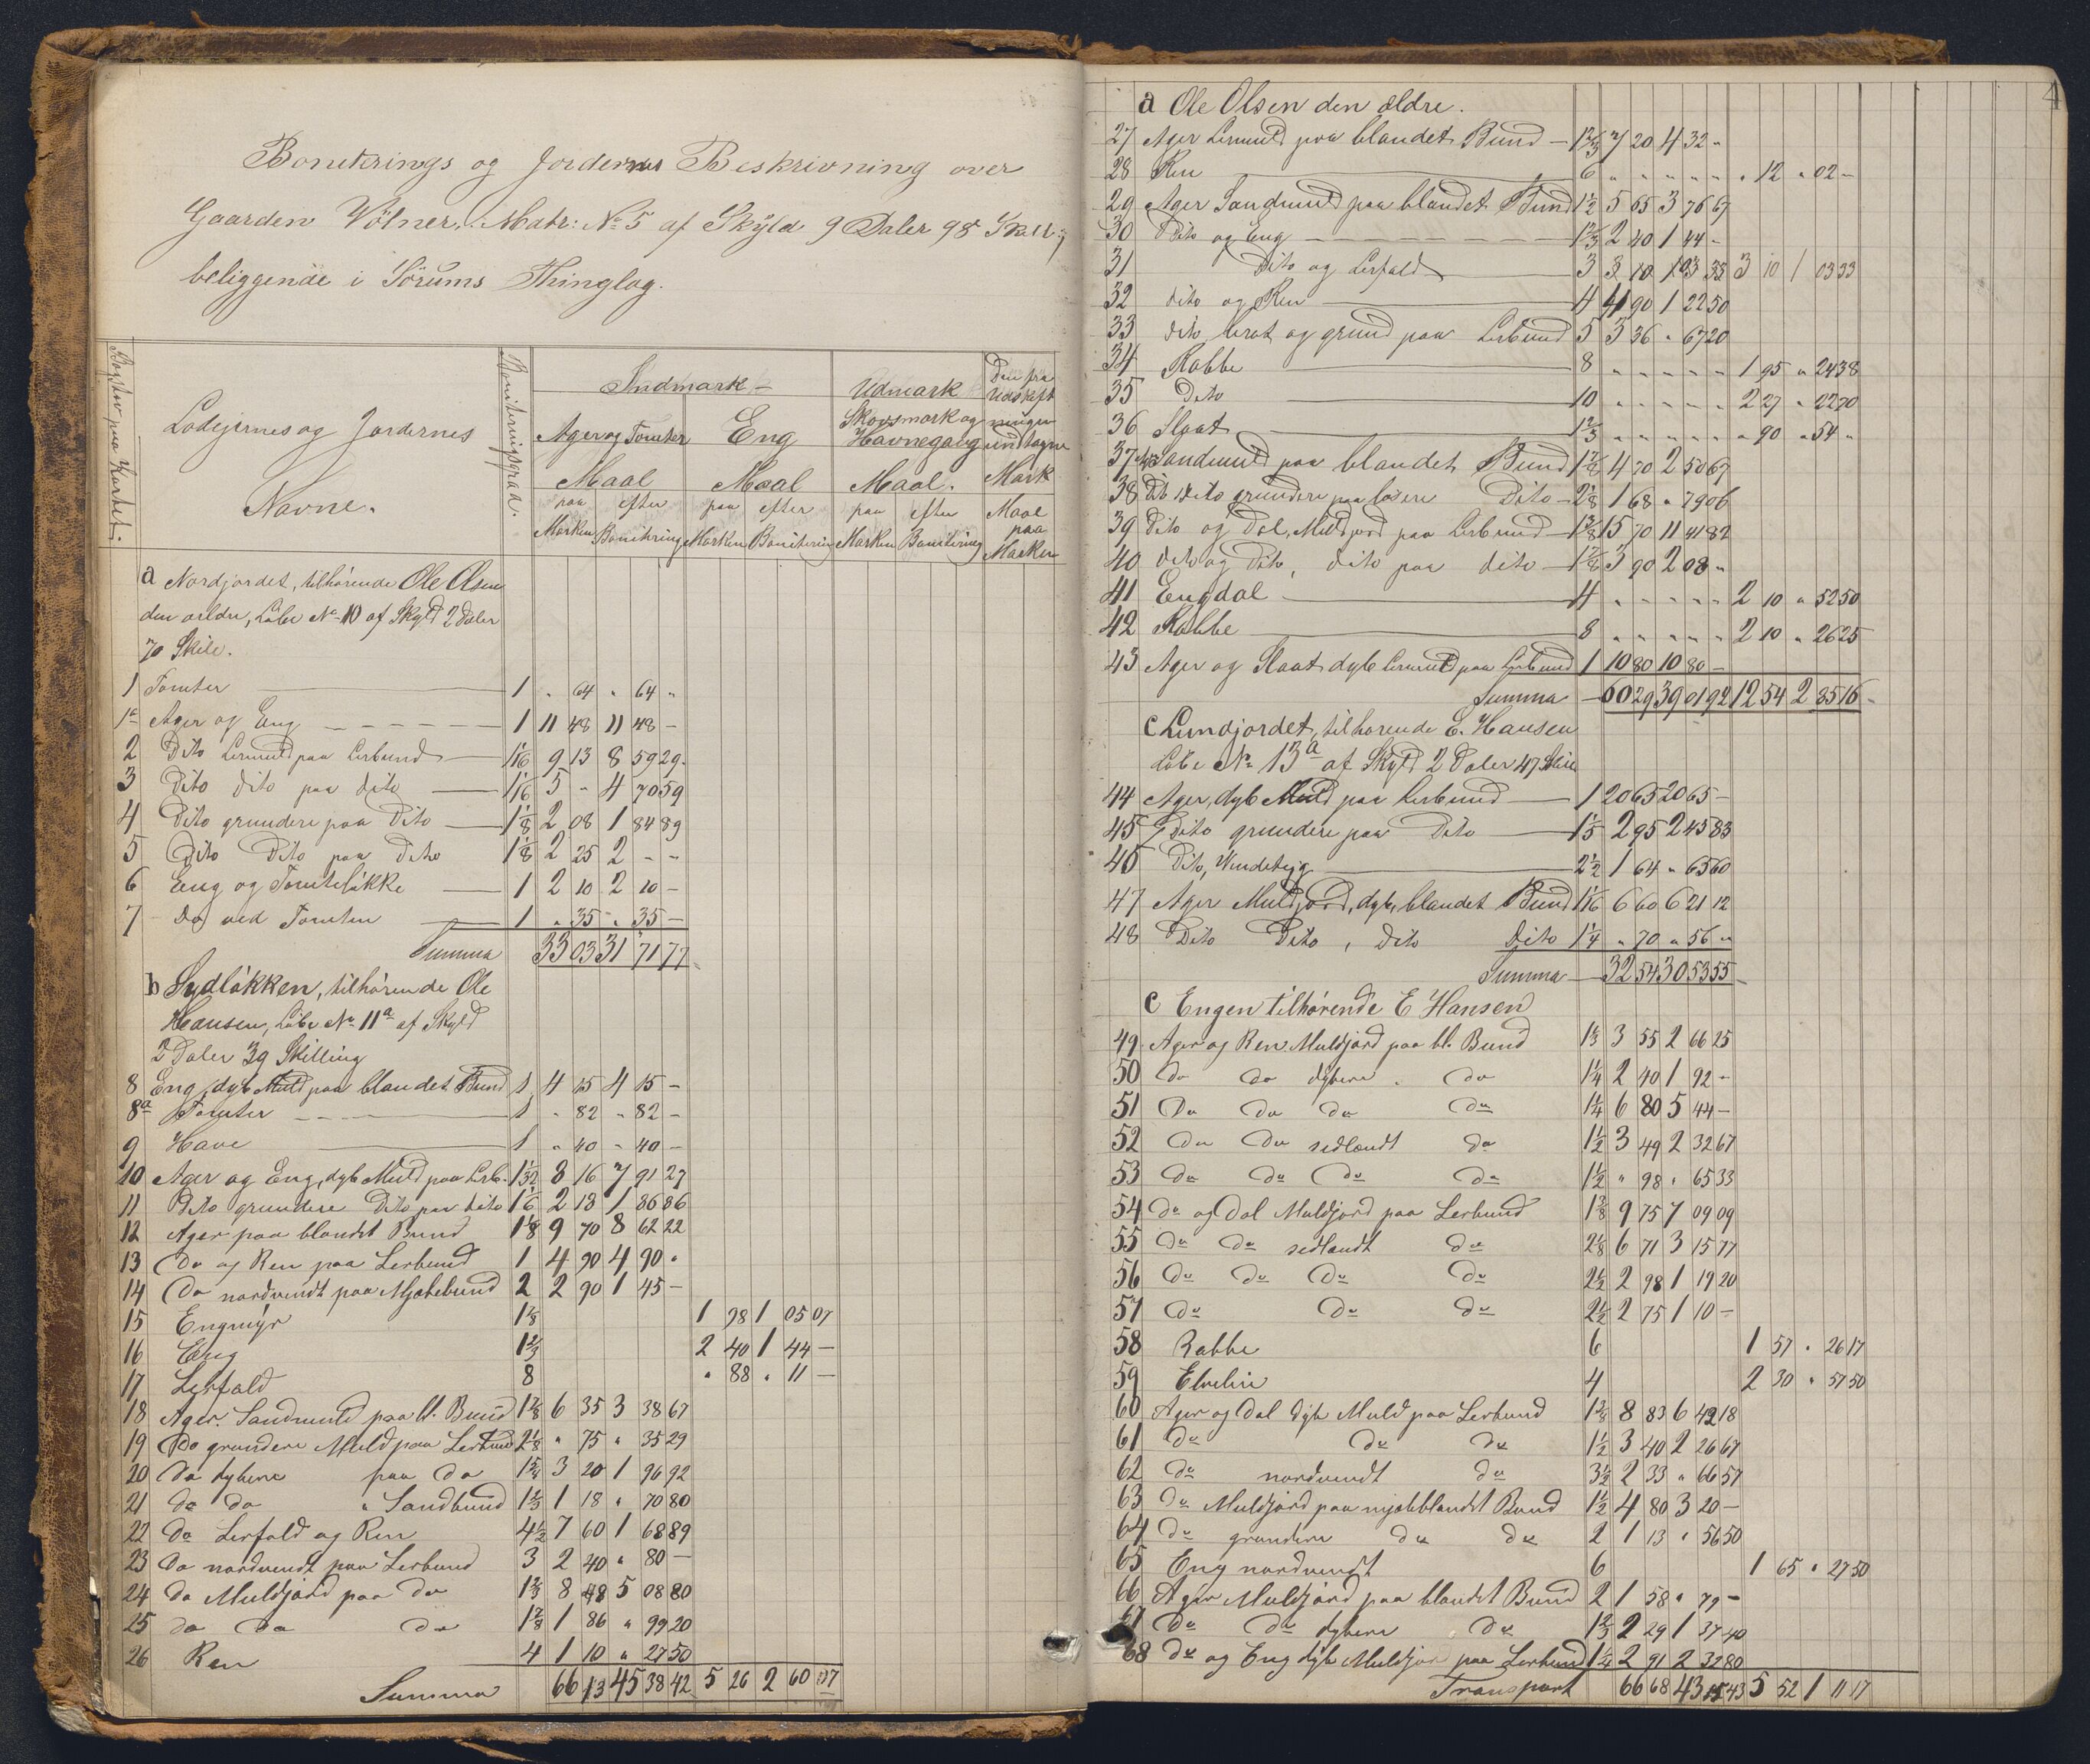 Boniterings og Jordernes Beskrivning over
Gaarden Völner, Matr: No 5 af Skÿld 9 Daler 98 Skill;
beliggende i Sörums Thinglag.
Bogstav paa Kartet.
Lodejernes og Jordernes
Navne.
Boniteringsgrad.
Indmark
Ager og Tomter
Eng
Udmark
Skovsmark og
Havnegang
Den fra
Udskift
ningen
undtagne
Mark
Maal
Maal
Maal.
Maal
paa
Marken
paa efter
Marken Bonitering
paa efter
Marken Bonitering
paa efter
Marken Bonitering
a Nordjordet, tilhørende Ole Olsen
den ældre, Löbe No 10 af Skyld 2 Daler
70 Skill.
1 Tomter 1 " 64 " 64 "
1a Ager og Eng 1 11 48 11 48 -
2 Dito Lermuld paa Lerbund 1 1/16 9 13 8 59 29
3 Dito dito paa dito 1 1/16 5 - 4 70 59
4 Dito grundere paa Dito 1 1/8 2 08 1 84 89
5 Dito Dito paa Dito 1 1/8 2 25 2 - -
6 Eng og Tomteløkke 1 2 10 2 10 -
7 Do ved Tomten 1 " 35 " 35 -
Summa 33 03 31 71 77
b Sydløkken, tilhørende Ole
Hansen, Löbe No 11a af Skyld
2 Daler 39 Skilling
8 Eng, dyb Muld paa blandet Bund 1 4 15 4 15 -
8a Tomter 1 " 82 " 82 -
9 Have 1 " 40 " 40 -
10 Ager og Eng, dyb Muld paa Lerb. 1 1/32 8 16 7 91 27
11 Dito grundere Dito paa dito 1 1/6 2 18 1 86 86
12 Ager paa blandet Bund 1 1/8 9 70 8 62 22
13 Do og Ren paa Lerbund 1 4 90 4 90 "
14 Do nordvendt paa Mjøhlebund 2 2 90 1 45 -
15 Engmÿr 1 7/8 1 98 1 05 07
16 Eng 1 2/3 2 40 1 44 -
17 Lerfald 8 " 88 " 11 -
18 Ager. Sandmuld paa bl. Bund 1 7/8 6 35 3 38 67
19 Do grundere Muld paa Lerbund 2 1/8 " 75 " 35 29
20 Do dybere paa Do 3 20 1 96 92
21 Do Do " Sandbund 1 2/3 1 18 " 70 80
22 Do Lerfald og Ren 4 1/2 7 60 1 68 89
23 Do nordvendt paa Lerbund 3 2 40 " 80 -
24 Do Muldjord paa Do 1 2/3 8 48 5 08 80
25 Do Do Do 1 7/8 1 86 " 99 20
26 Ren 4 1 10 " 27 50
Summa 66 13 45 38 42 5 26 2 60 07
4
a Ole Olsen den ældre.
27 Ager Lermuld paa blandet Bund 1 2/3 7 20 4 32 "
28 Ren 6 " " " " " " 12 " 02 -
29 Ager Sandmuld paa blandet Bund 1 1/2 5 65 3 76 67
30 Dito og Eng 1 2/3 2 40 1 44 -
31 Dito og Lerfald 3 3 10 1 03 33 3 10 1 03 33
32 dito og Ren 4 4 90 1 22 50
33 dito brat og grund paa Lerbund 5 3 36 " 67 20
34 Rabbe 8 " " " " " 1 95 " 24 38
35 Dito 10 " " " " " 2 27 " 22 70
36 Slaat 1 2/3 " " " " " " 90 " 54 "
37 Sandmuld paa blandet Bund 1 7/8 4 70 2 50 67
38 Dito dito grundere paa løsere Dito 2 1/8 1 68 " 79 06
39 Dito og Dal, Muldjord paa Lerbund 1 3/8 15 70 11 41 82
40 dito og Dito, dito paa dito 1 7/8 3 90 2 08 "
41 Engdal 4 " " " " " 2 10 " 52 50
42 Rabbe 8 " " " " " 2 10 " 26 25
43 Ager og Slaat dyb Lermuld paa Lerbund 1 10 80 10 80 -
Summa 60 29 39 01 92 12 54 2 85 16
c Lundjordet, tilhørende E. Hansen
Löbe No 13a af Skyld 2 Daler 47 Skill
44 Ager, dyb Muld paa Lerbund 1 20 65 20 65 -
45 Dito grundere paa Dito 1 1/5 2 95 2 45 83
46 Dito, Vendeteig 2 1/2 1 64 " 65 60
47 Ager Muldjord, dyb, blandet Bund 1 1/16 6 60 6 21 12
48 Dito Dito, Dito Dito 1 1/4 " 70 " 56 "
Summa 32 54 30 53 55
c Engen tilhørende E Hansen
49 Ager og Ren Muldjord paa bl. Bund 1 1/3 3 55 2 66 25
50 Do Do dybere " Do 1 1/4 2 40 1 92 -
51 Do Do Do Do 1 1/4 6 80 5 44 -
52 Do Do sidlændt Do 1 1/2 3 49 2 32 67
53 Do Do Do Do 1 1/2 " 98 " 65 33
54 Do og Dal Muldjord paa Lerbund 1 3/8 9 75 7 09 09
55 Do Do sidlændt Do 2 1/8 6 71 3 15 77
56 Do Do Do Do 2 1/2 2 98 1 19 20
57 Do Do Do 2 1/2 2 75 1 10 -
58 Rabbe 6 1 57 " 26 17
59 Elvelin 4 2 30 " 57 50
60 Ager og Dal dyb Muld paa Lerbund 1 3/8 8 83 6 42 18
61 Do Do Do 1 1/2 3 40 2 26 67
62 Do nordvendt Do 3 1/2 2 33 " 66 57
63 Do Muldjord paa mjøleblandet Bund 1 1/2 4 80 3 20 -
64 Do grundere Do Do 2 1 13 " 56 50
65 Eng nordvendt 6 1 65 " 27 50
66 Ager Muldjord paa blandet Bund 2 1 58 " 79 -
67 Do Do dybere Do 1 2/3 2 29 1 37 40
68 Do og Eng dyb Muldjor paa Lerbund 1 1/4 2 91 2 32 80
Transport 66 68 43 15 43 5 52 1 11 17